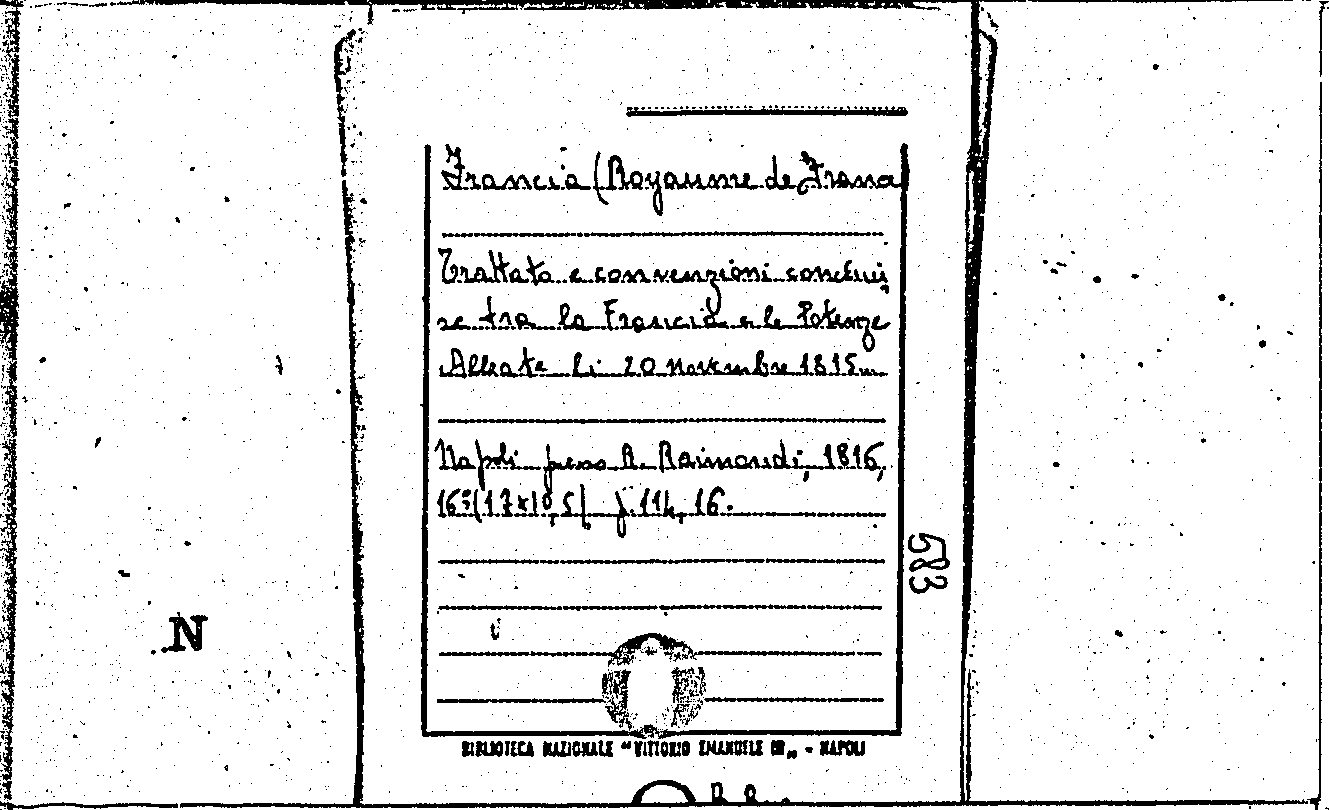 Francia (Royaume de Franc
Trattato e convenzioni conclui
se tra la Francia e le Potenze
Alleate li 20 Novembre 1815
Napoli presso R. Raimondi, 1816,
16º (17x10,5). 114, 16.
583
N
BIBLIOTECA NAZIONALE "VITTORIO EMANUELE III" - NAPOLI